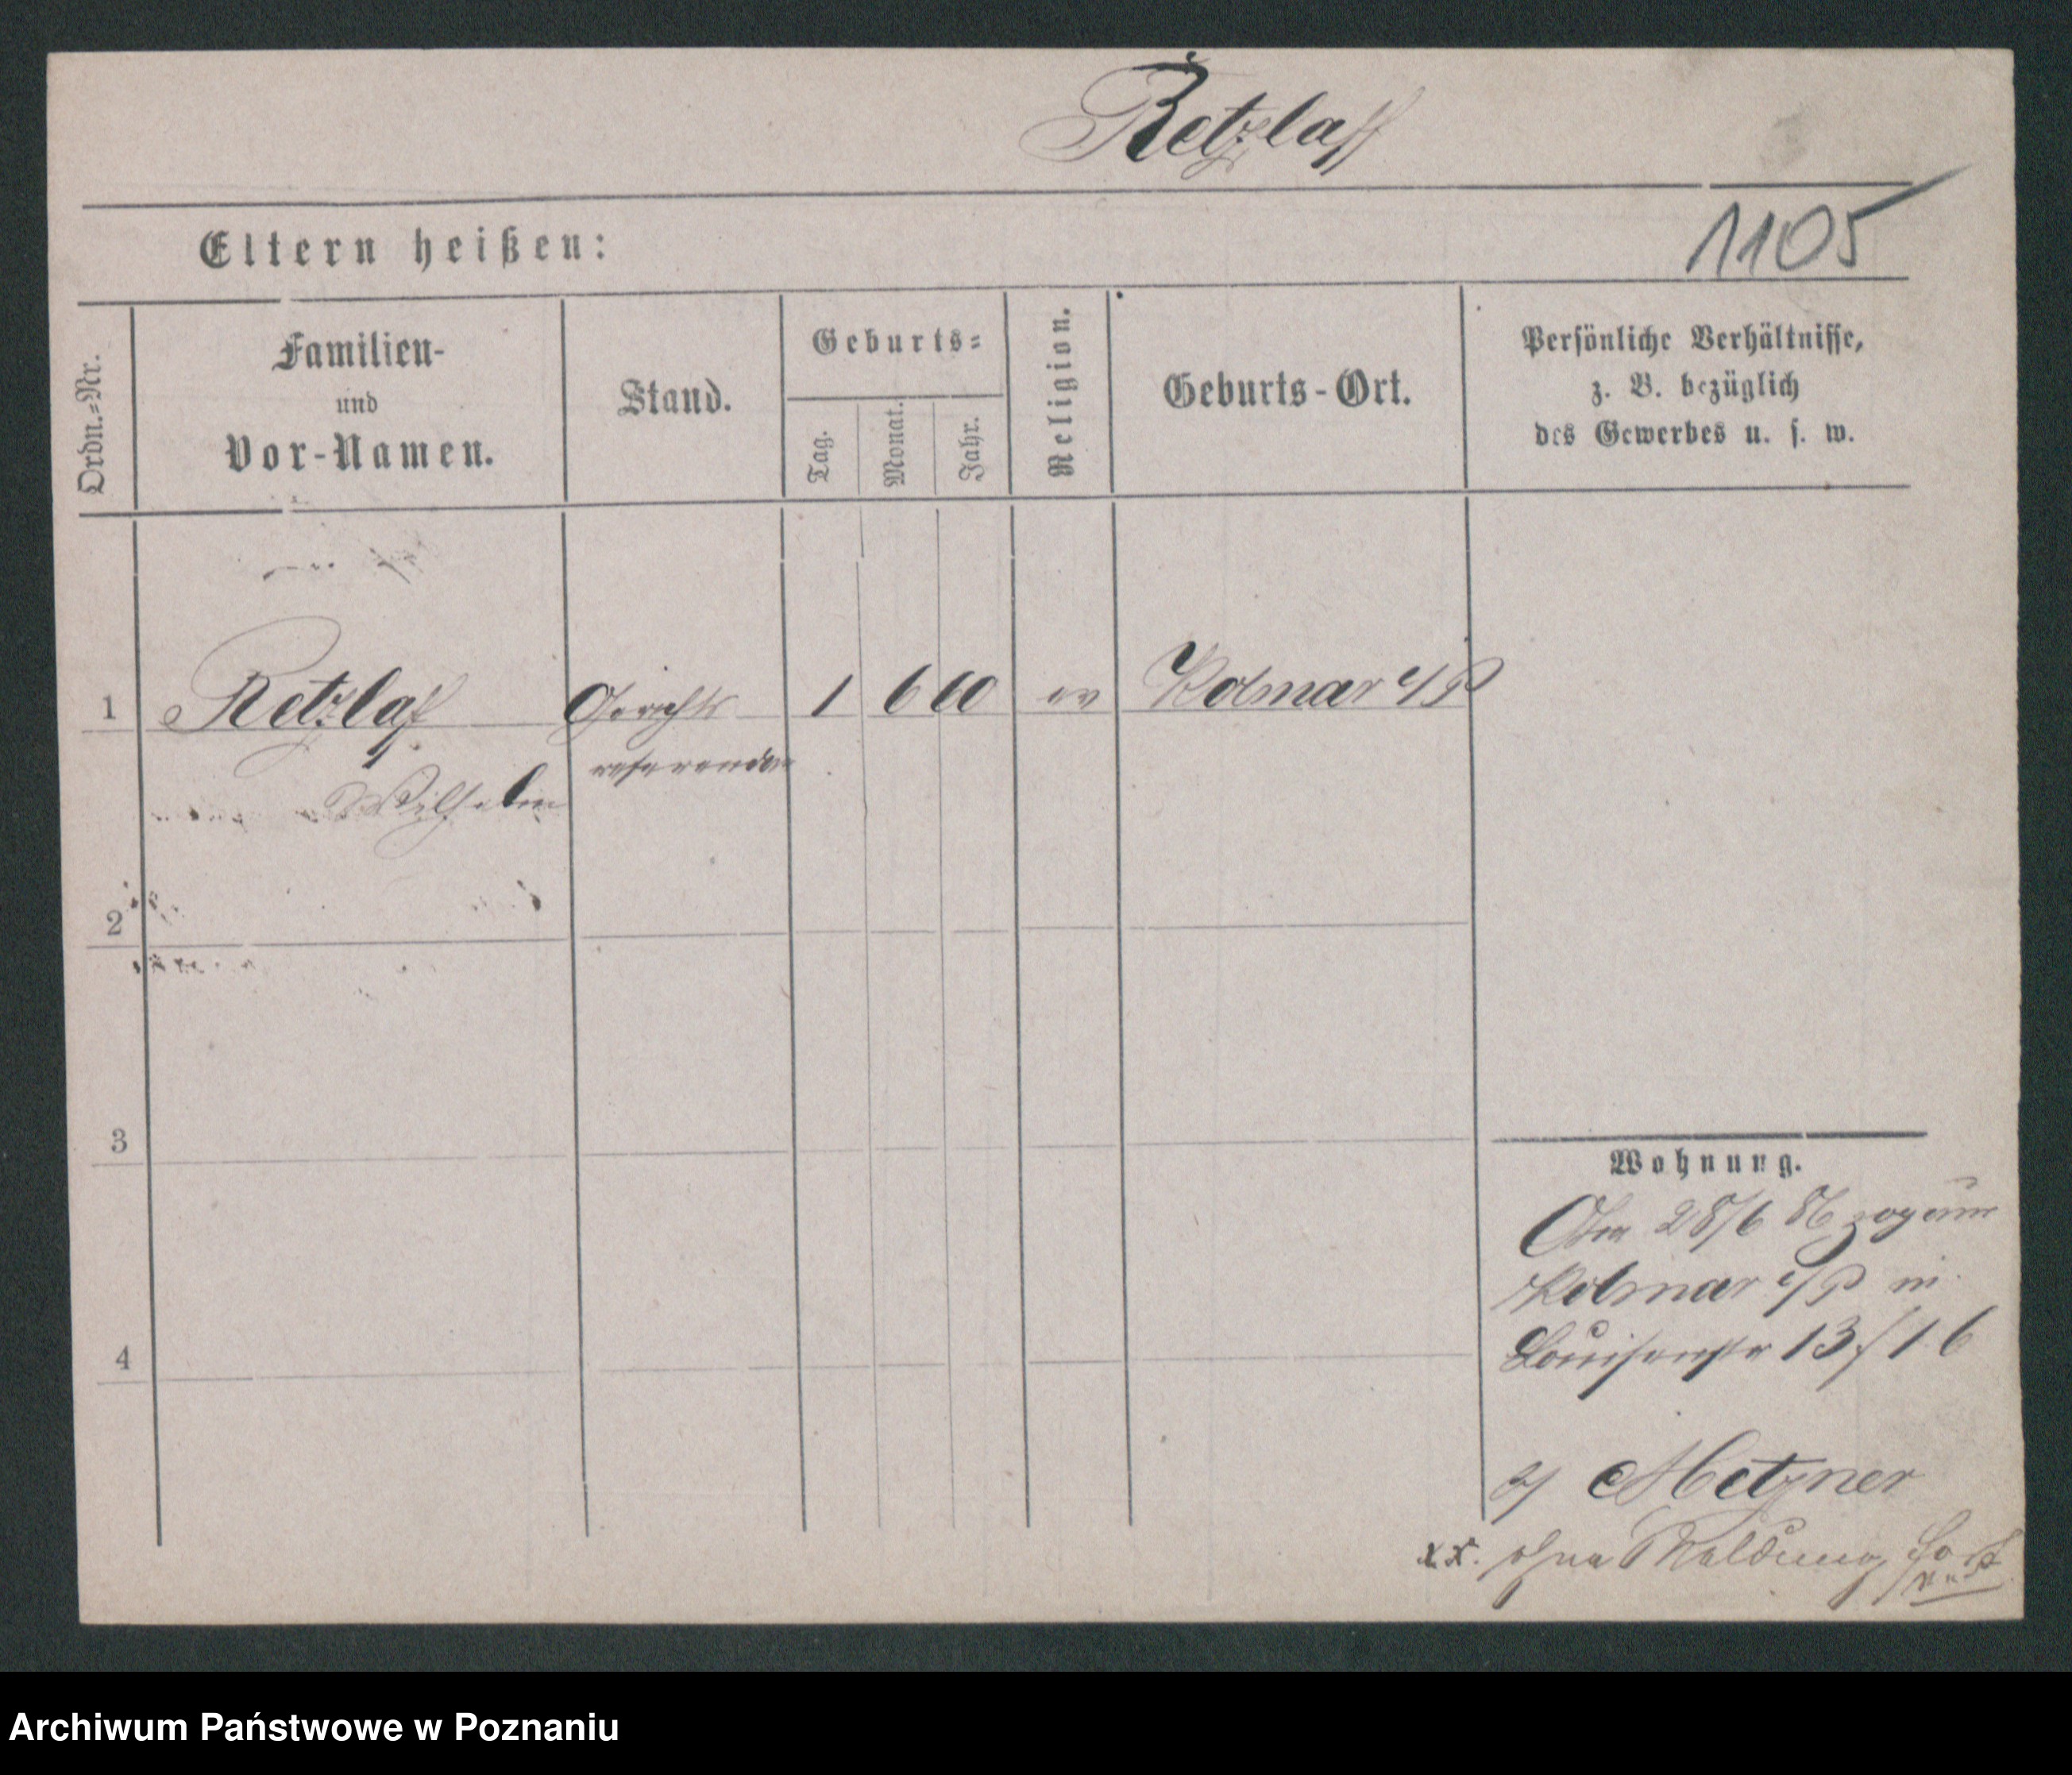 Retzlaff
1105
Eltern heißen:
Ordn.=Nr.
Familien-
und
Vor-Namen.
Stand.
Geburts=
Tag.
Monat.
Jahr.
Religion.
Geburts-Ort.
Persönliche Verhältnisse,
z. B. bezüglich
des Gewerbes u. s. w.
1 Retzlaf Gerichts 1 6 60 ev Kolmar i/P
referendar
Wilhelm
2
3
4
Wohnung.
Am 28/6 86 zog aus
Kolmar i/P in
Louisenstr 13/16
b/ Metzner
x.x. ohne Meldung fort
Archiwum Państwowe w Poznaniu